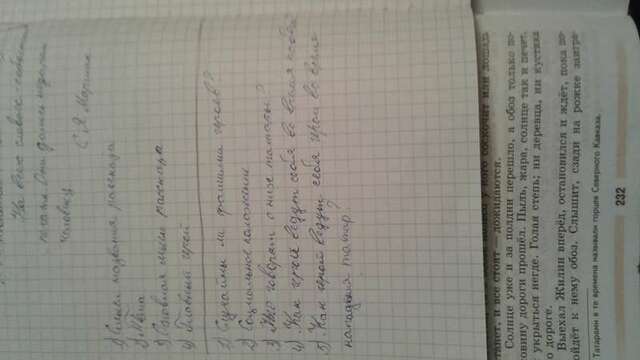 На всех словах события
печать. Они
человек
С. Я. Маршак
1) Смысл названия рассказа
2) Тема
3) Основная мысль рассказа
4) Главный герой
1) Случайны ли фамилии героев?
2) Социальное положение
3) Что говорят о них татары?
4) Как герои ведут себя во время
5) Как герои ведут себя во время
нападения татар?
и все стоят — дожидаются.
Солнце уже и за полдни перешло, а обоз только по-
ловину дороги прошёл. Пыль, жара, солнце так и печёт,
укрыться негде. Голая степь; ни деревца, ни кустика
о дороге.
Выехал Жилин вперёд, остановился и ждёт, пока по-
ойдёт к нему обоз. Слышит, сзади на рожке заигра-
Татарами в те времена называли горцев Северного Кавказа.
232